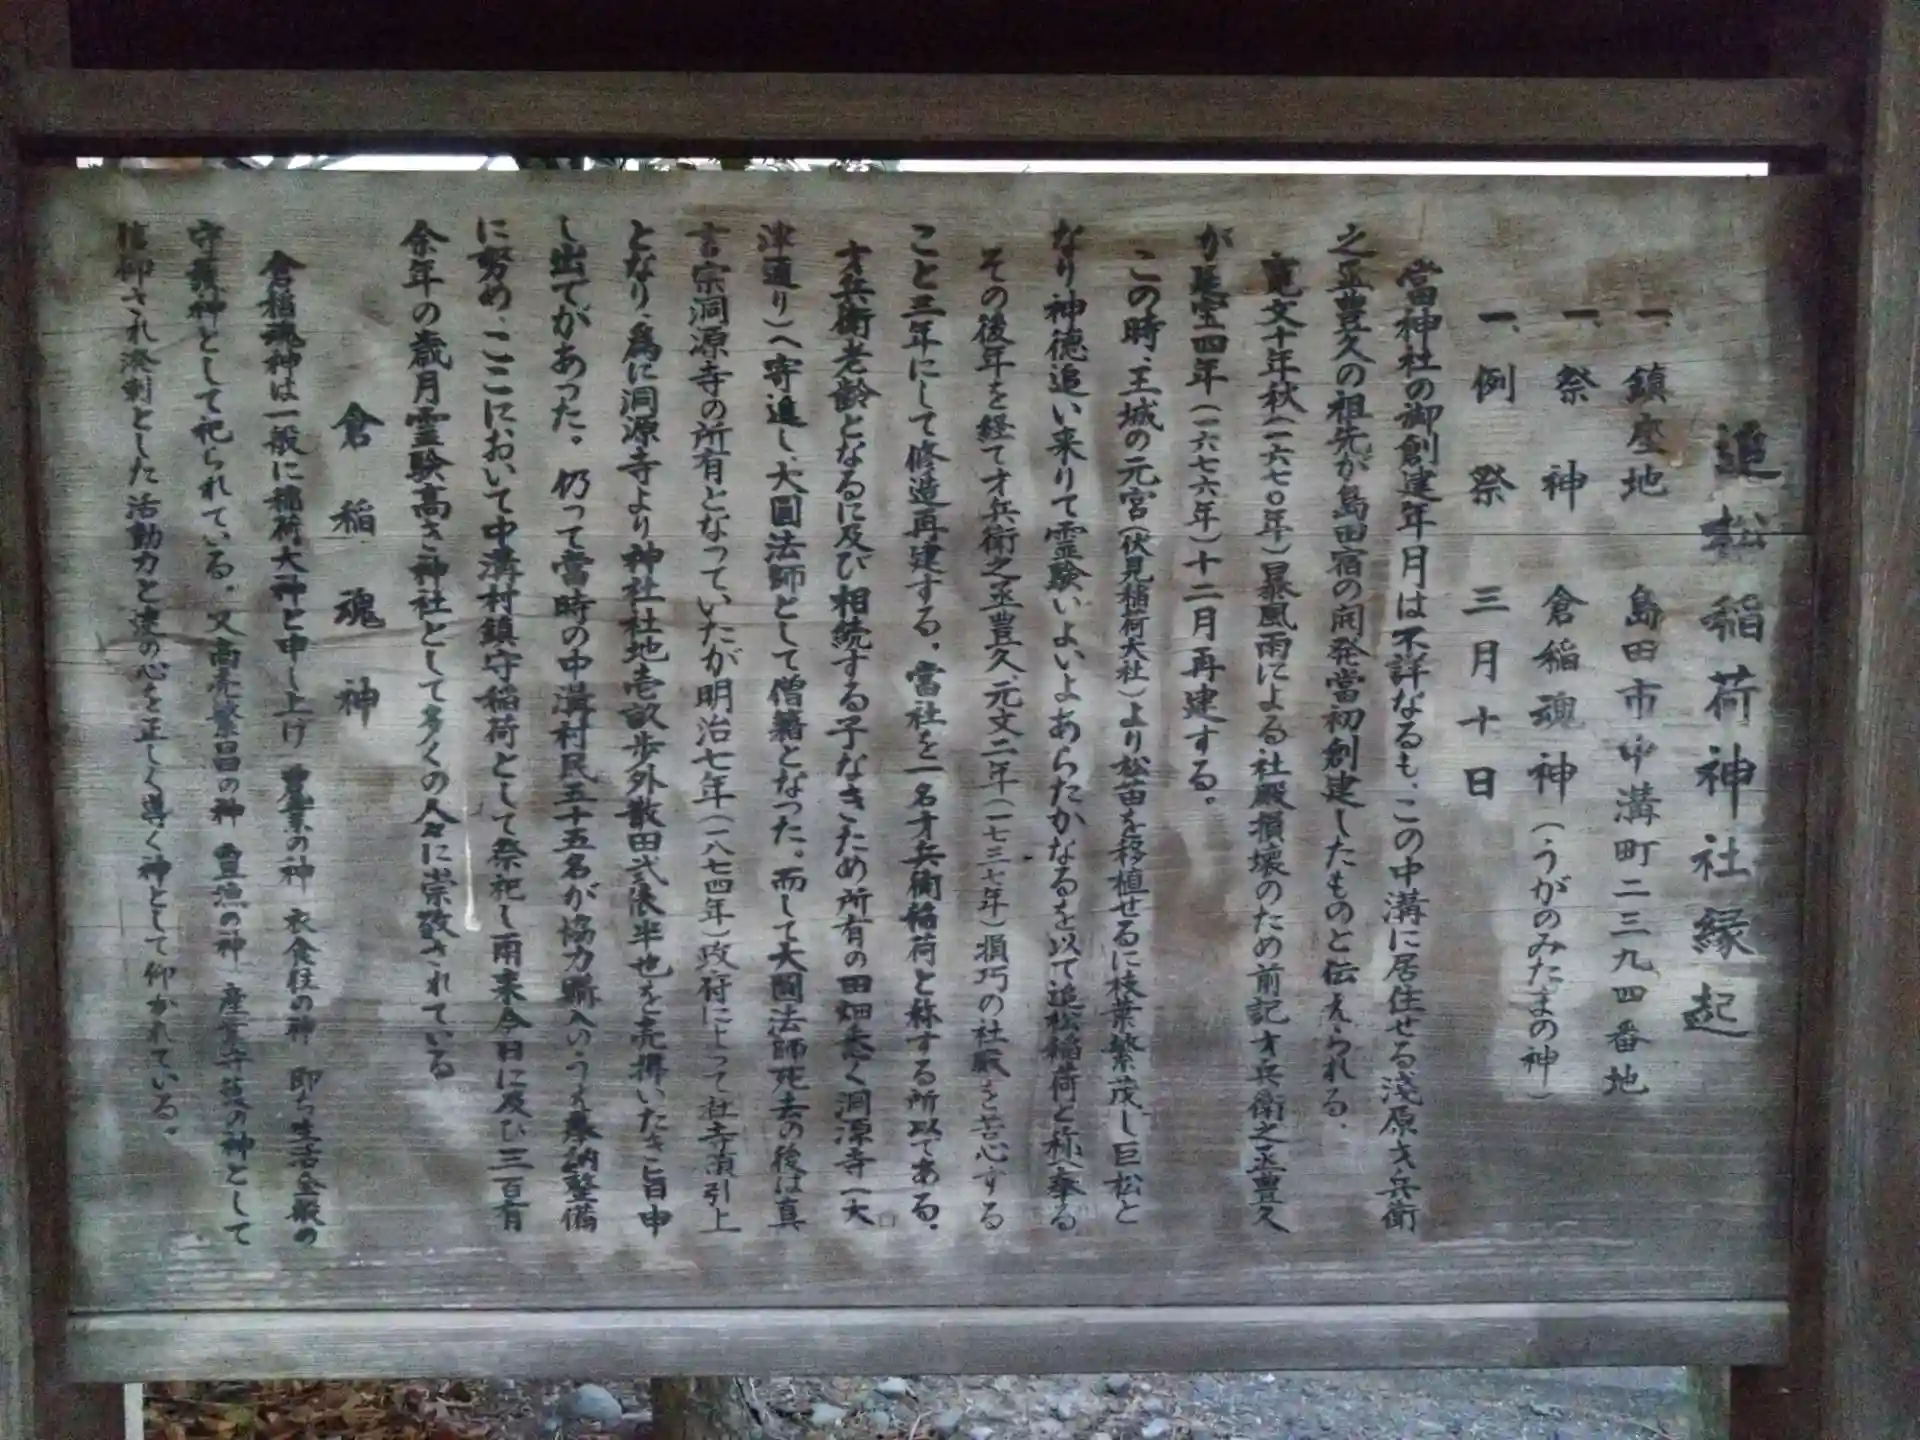 追松稲荷神社縁起
一、鎮座地 島田市中溝町二三九四番地
一、祭神 倉稲魂神(うがのみたまの神)
一、例祭 三月十日
當神社の御創建年月は不詳なるも、この中溝に居住せる淺原才兵衛
之丞豊久の祖先が島田宿の開発當初創建したものと伝えられる。
寛文十年秋(一六七〇年)暴風雨による社殿損壊のため前記才兵衛之丞豊久
が延宝四年(一六七六年)十二月再建する。
この時、王城の元宮(伏見稲荷大社)より松苗を移植せるに枝葉繁茂し巨松と
なり神徳追い来りて霊験いよいよあらたかなるを以て追松稲荷と称へ奉る
その後年を経て才兵衛之丞豊久、元文二年(一七三七年)損巧の社殿を苦心する
こと三年にして修造再建する。當社を一名才兵衛稲荷と称する所以である。
才兵衛老齢となるに及び相続する子なきため所有の田畑悉く洞源寺(大
津通り)へ寄進し、大圓法師として僧籍となった。而して大圓法師死去の後は真
言宗洞源寺の所有となっていたが明治七年(一八七四年)政府によって社寺領引上
となり、為に洞源寺より神社社地壱畝歩外散田弐俵半也を売拂いたき旨申
し出てがあった。仍って當時の中溝村民五十五名が協力購入のうえ奉納整備
に努め、ここにおいて中溝村鎮守稲荷として祭祀し爾来今日に及ひ三百有
余年の歳月霊験高き神社として多くの人々に崇敬されている
倉稲魂神
倉稲魂神は一般に稲荷大神と申し上げ 農業の神 衣食住の神 即ち生活全般の
守護神として祀られている。又商売繁昌の神 豊漁の神 産業守護の神として
信仰され溌剌とした活動力と速の心を正しく導く神として仰かれている。